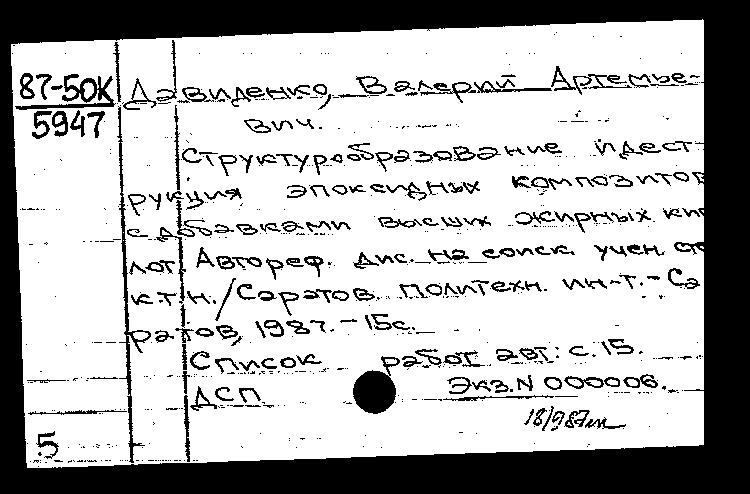 87-50К
5947
Давиденко, Валерий Артемье-
вич.
Структурообразование и дест-
рукция эпоксидных композитов
с добавками высших жирных кис
лот. Автореф. дис. на соиск. учен. сте
к.т.н. / Саратов. политехн. ин-т. - Са
ратов, 1987. - 15с.
Список работ авт: с. 15.
ДСП Экз. N 000006.
5